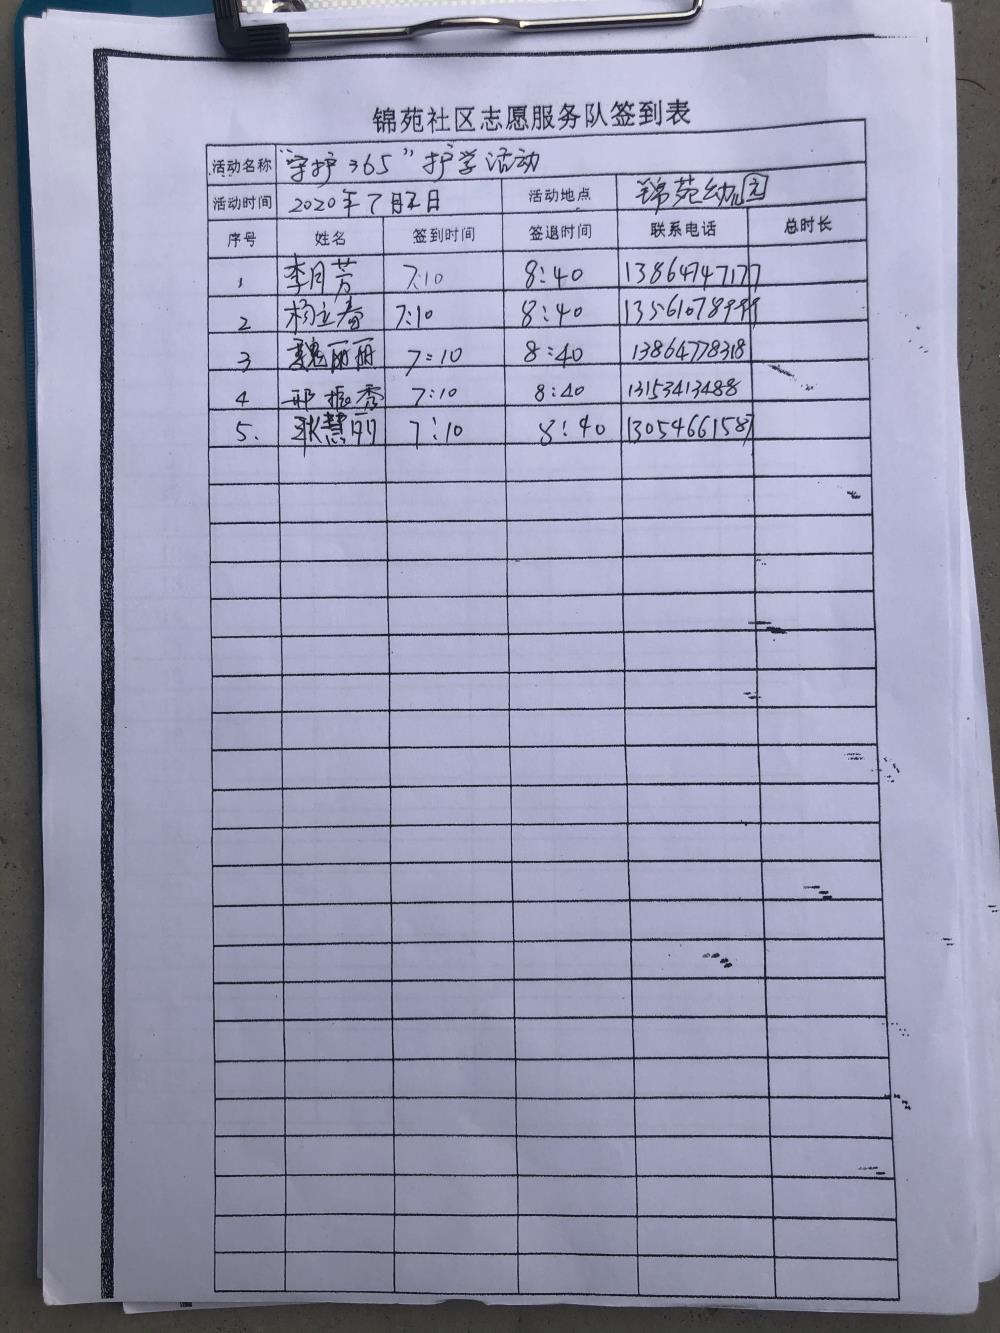 锦苑社区志愿服务队签到表
活动名称 "守护365"护学活动
活动时间 2020年7月5日 活动地点 锦苑幼儿园
序号 姓名 签到时间 签退时间 联系电话 总时长
1 李月芳 7:10 8:40 13864747177
2 杨立春 7:10 8:40
3 魏丽丽 7:10 8:40 13864778318
4 邢振秀 7:10 8:40 13153413488
5. 耿慧丽 7:10 8:40 13054661587